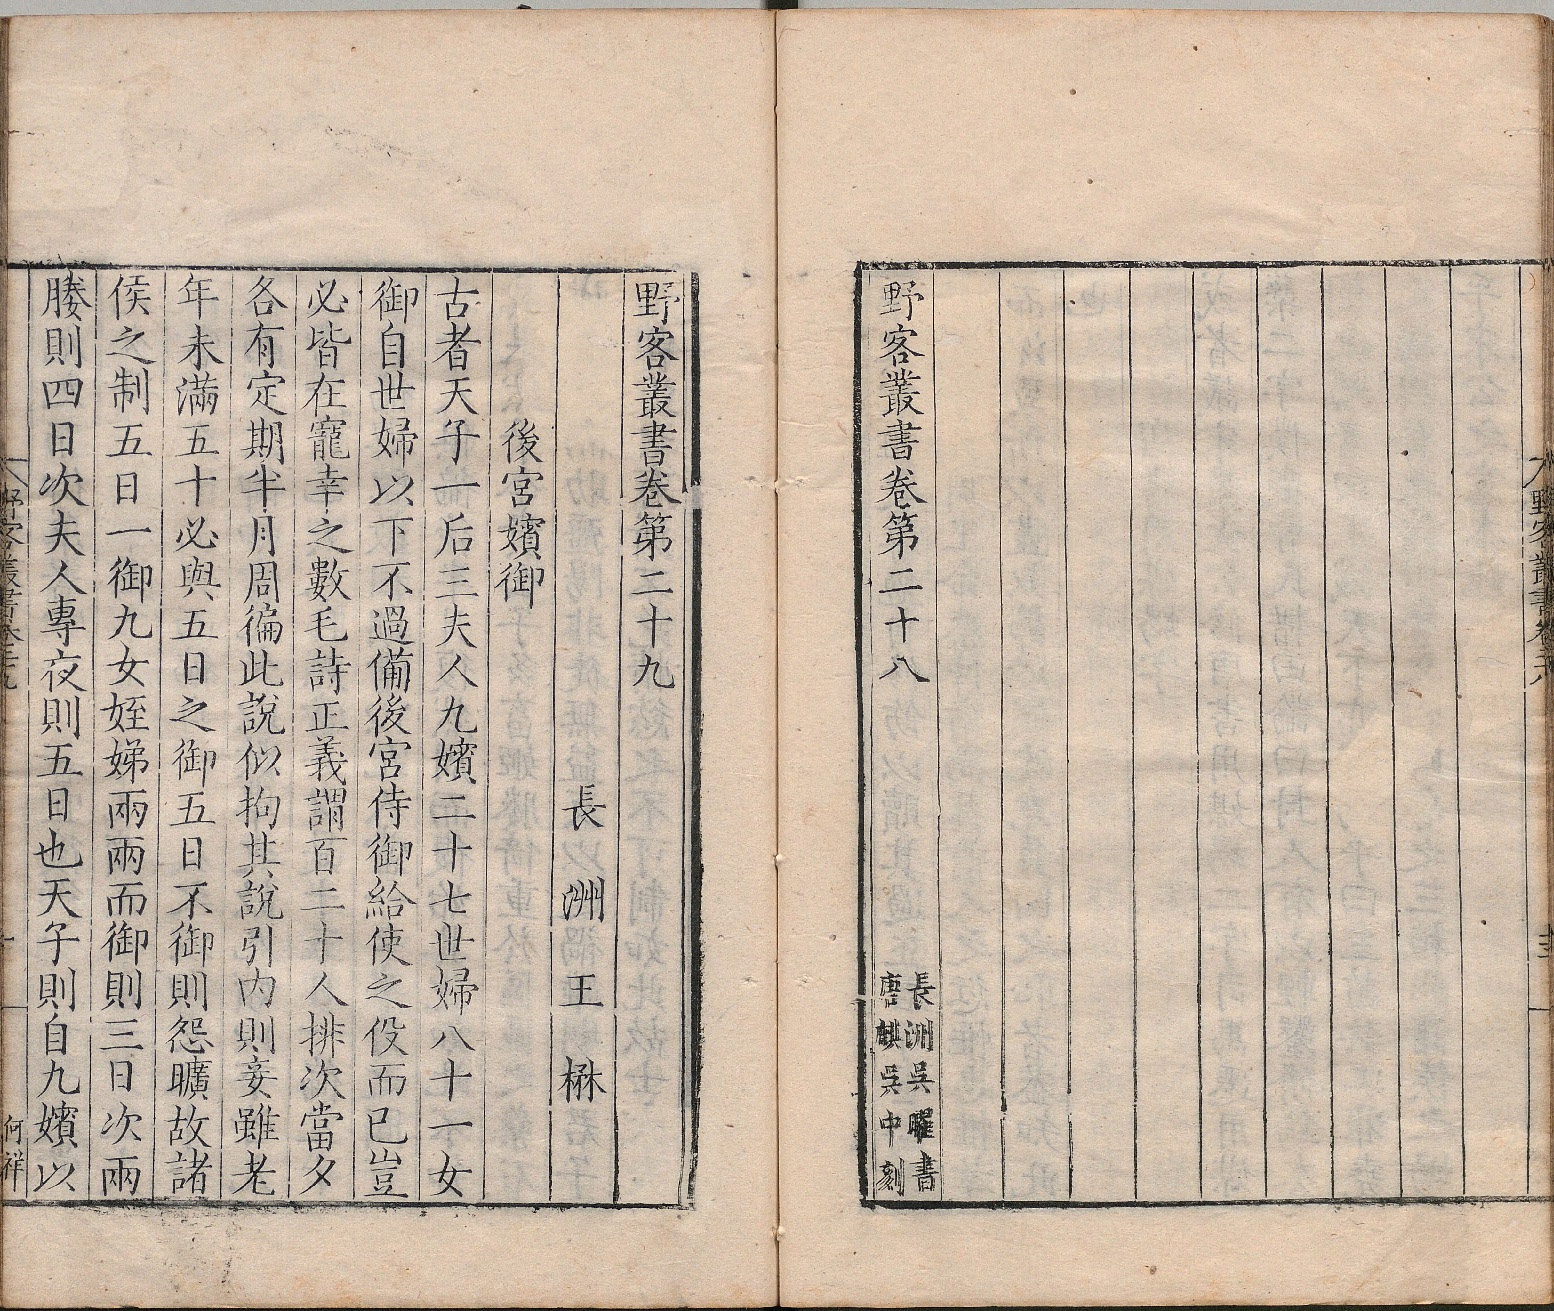 野客叢書卷第二十八
長洲吳曜書
唐麒吳中刻
野客叢書卷第二十九
長洲王楙
後宮嬪御
古者天子一后三夫人九嬪二十七世婦八十一女
御自世婦以下不過備後宮侍御給使之役而已豈
必皆在寵幸之數毛詩正義謂百二十人排次當夕
各有定期半月周徧此說似拘其說引內則妾雖老
年未滿五十必與五日之御五日不御則怨曠故諸
侯之制五日一御九女姪娣兩兩而御則三日次兩
媵則四日次夫人專夜則五日也天子則自九嬪以
野客叢書卷二十九
何祥